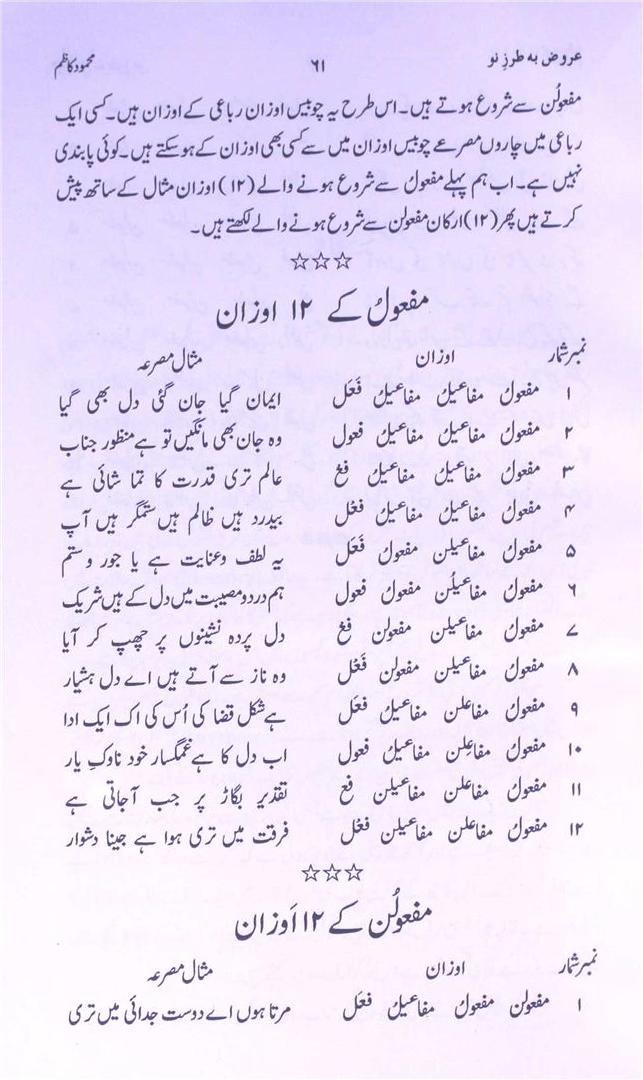 عروض بہ طرزِ نو ۶۱ محمود کاظم
مفعولُن سے شروع ہوتے ہیں۔ اس طرح یہ چوبیس اوزان رباعی کے اوزان ہیں۔ کسی ایک
رباعی میں چاروں مصرعے چوبیس اوزان میں سے کسی بھی اوزان کے ہوسکتے ہیں۔ کوئی پابندی
نہیں ہے۔ اب ہم پہلے مفعول سے شروع ہونے والے (۱۲) اوزان مثال کے ساتھ پیش
کرتے ہیں پھر (۱۲) ارکان مفعولن سے شروع ہونے والے لکھتے ہیں۔
☆☆☆
مفعولُ کے ۱۲ اوزان
نمبر شمار اوزان مثال مصرعہ
۱ مفعول مفاعیلُ مفاعیلُ فَعَل ایمان گیا جان گئی دل بھی گیا
۲ مفعول مفاعیلُ مفاعیلُ فعول وہ جان بھی مانگیں تو ہے منظور جناب
۳ مفعول مفاعیلُ مفاعیلن فع عالم تری قدرت کا تماشائی ہے
۴ مفعول مفاعیلُ مفاعیلن فعْل بیدرد ہیں ظالم ہیں ستمگر ہیں آپ
۵ مفعول مفاعیلن مفعول فَعَل یہ لطف وعنایت ہے یا جور و ستم
۶ مفعول مفاعیلُن مفعول فعول ہم درد و مصیبت میں دل کے ہیں شریک
۷ مفعول مفاعیلن مفعولن فع دل پردہ نشینوں پر چھپ کر آیا
۸ مفعول مفاعیلن مفعولن فعْل وہ ناز سے آتے ہیں اے دل ہشیار
۹ مفعول مفاعلن مفاعیلُ فَعَل ہے شکل قضا کی اُس کی اک ایک ادا
۱۰ مفعول مفاعِلن مفاعیلُ فعول اب دل کا ہے غمگسار خود ناوکِ یار
۱۱ مفعول مفاعلن مفاعیلن فع تقدیر بگاڑ پر جب آجاتی ہے
۱۲ مفعول مفاعلن مفاعیلن فعْل فرقت میں تری ہوا ہے جینا دشوار
☆☆☆
مفعولُن کے ۱۲ اَوزان
نمبر شمار اوزان مثال مصرعہ
۱ مفعولن مفعولُ مفاعیلُ فعَل مرتا ہوں اے دوست جدائی میں تری